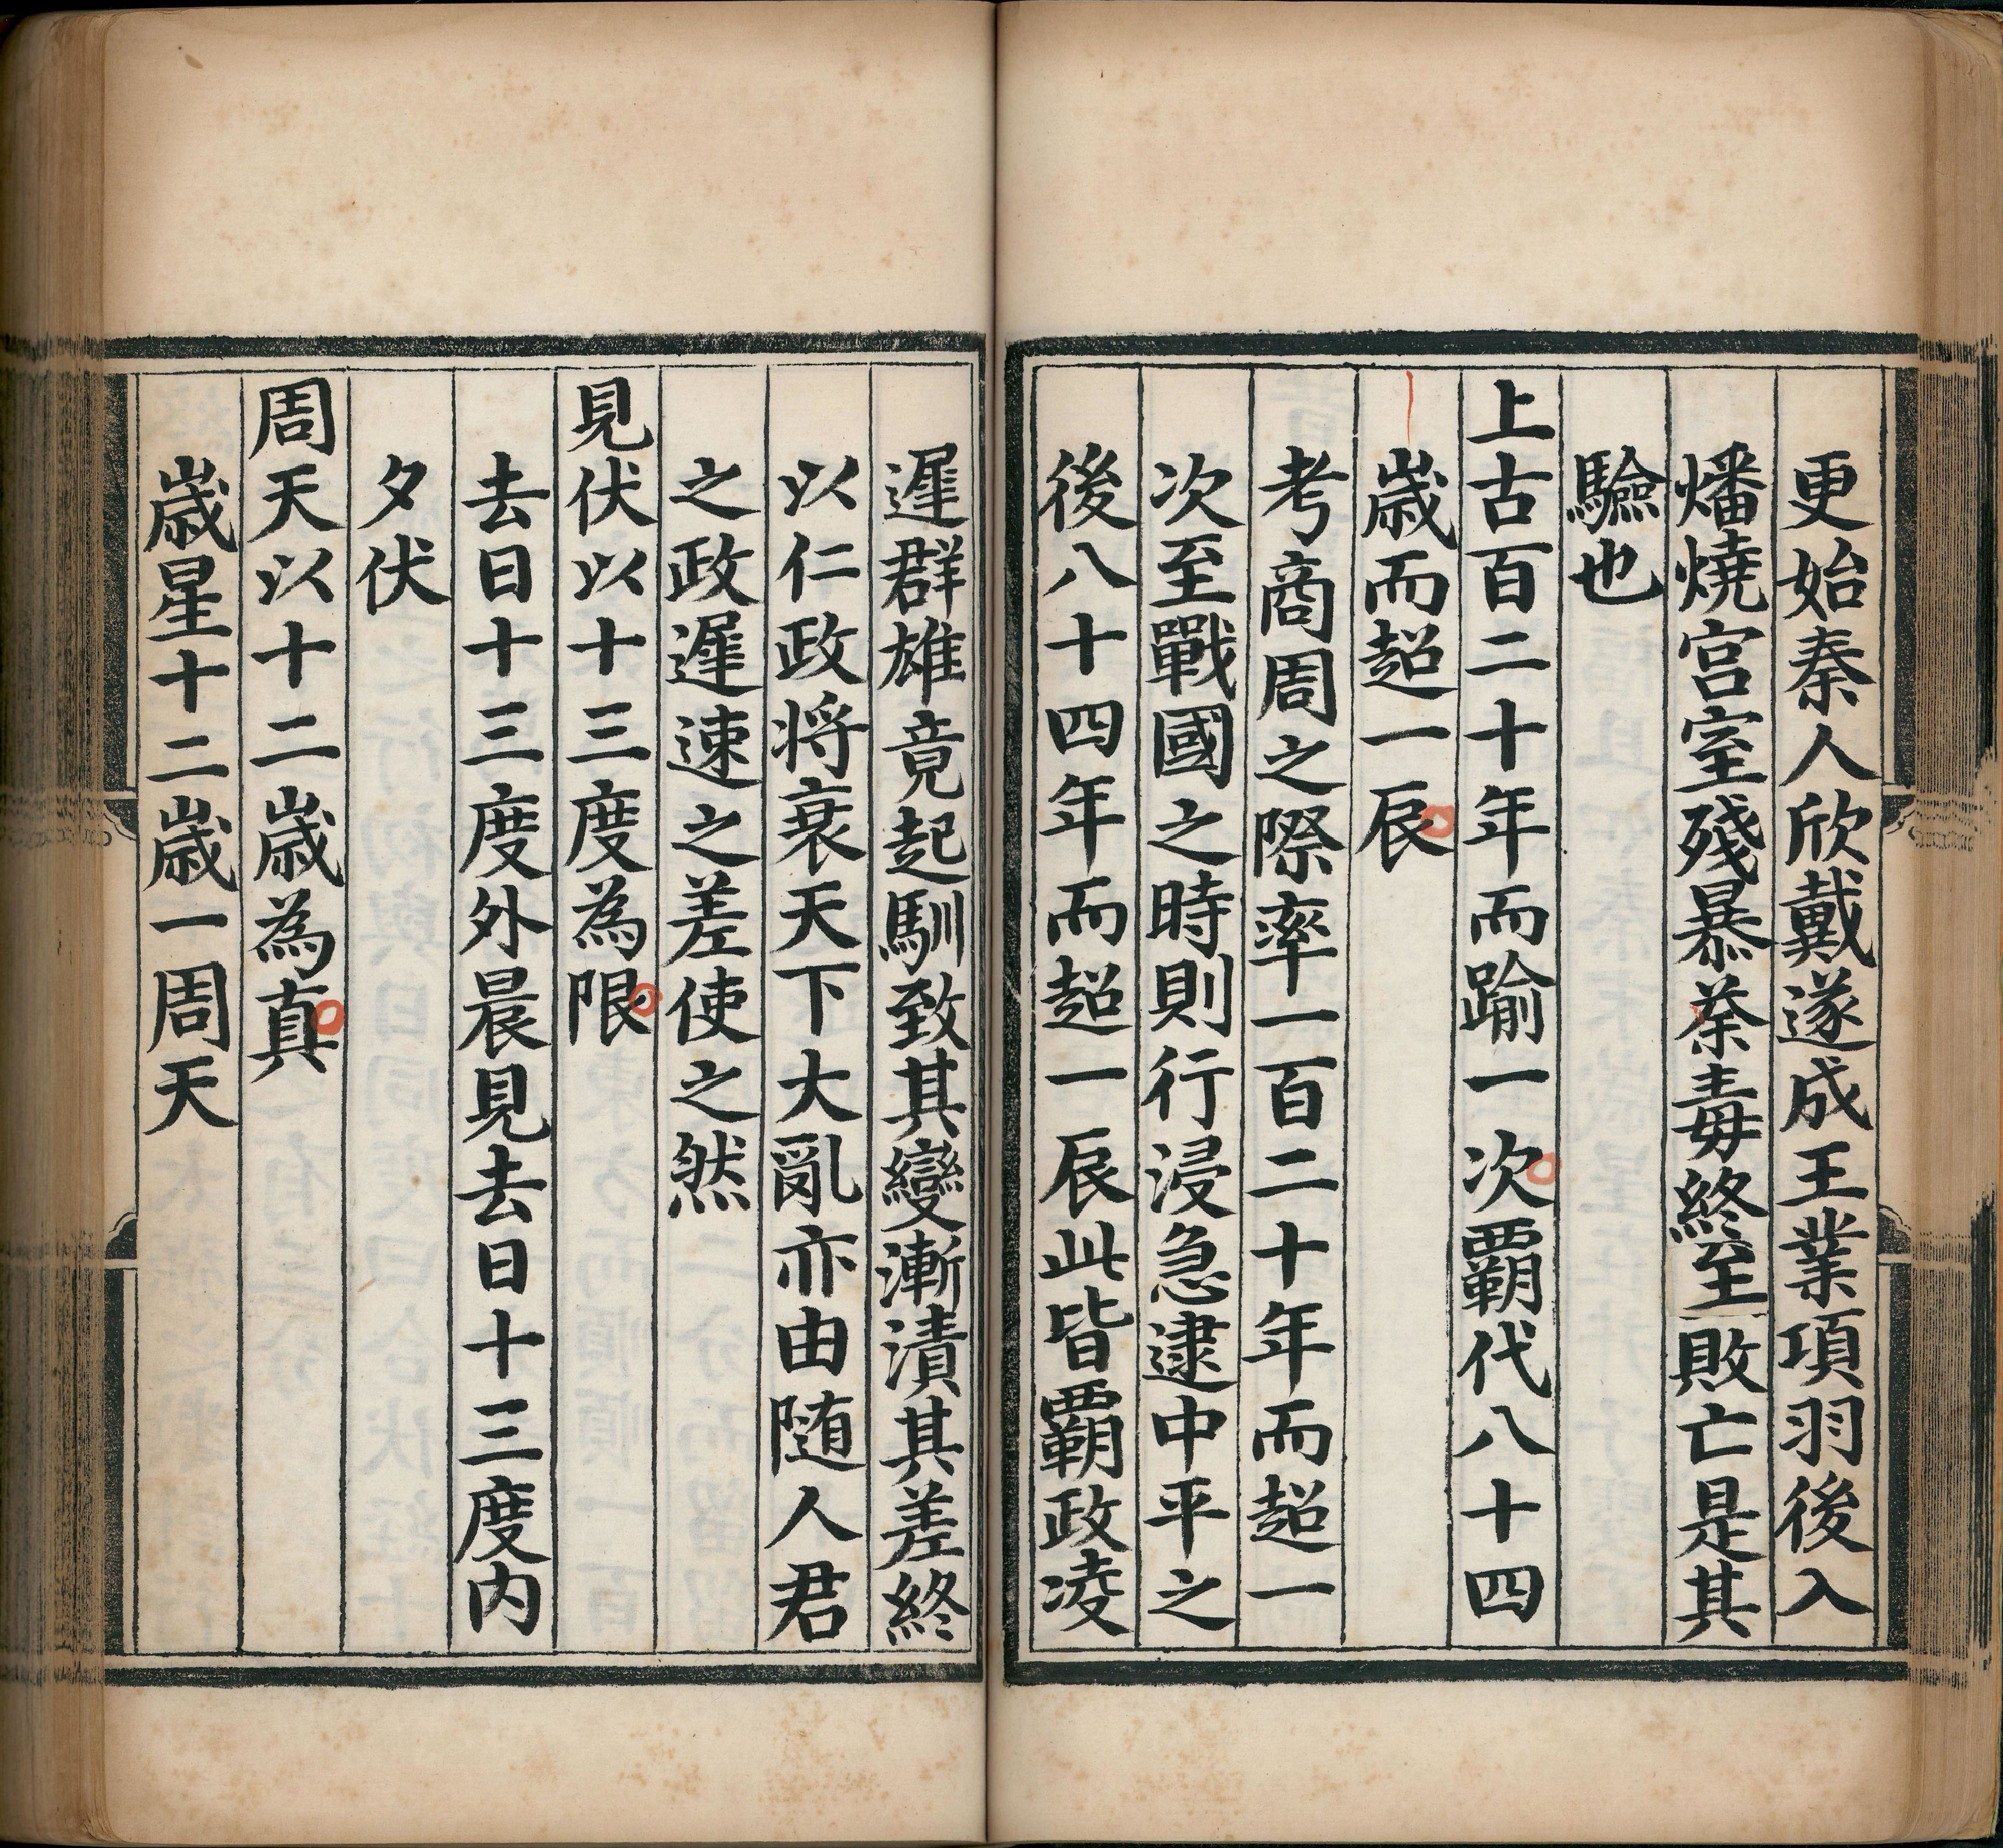 更始秦人欣戴遂成王業項羽後入
燔燒宮室殘暴荼毒終至敗亡是其
驗也
上古百二十年而踰一次覇代八十四
歲而超一辰
考商周之際率一百二十年而超一
次至戰國之時則行浸急逮中平之
後八十四年而超一辰此皆覇政凌
遲群雄竟起馴致其變漸漬其差終
以仁政将衰天下大亂亦由随人君
之政遲速之差使之然
見伏以十三度為限
去日十三度外晨見去日十三度内
夕伏
周天以十二歲為真
歲星十二歲一周天